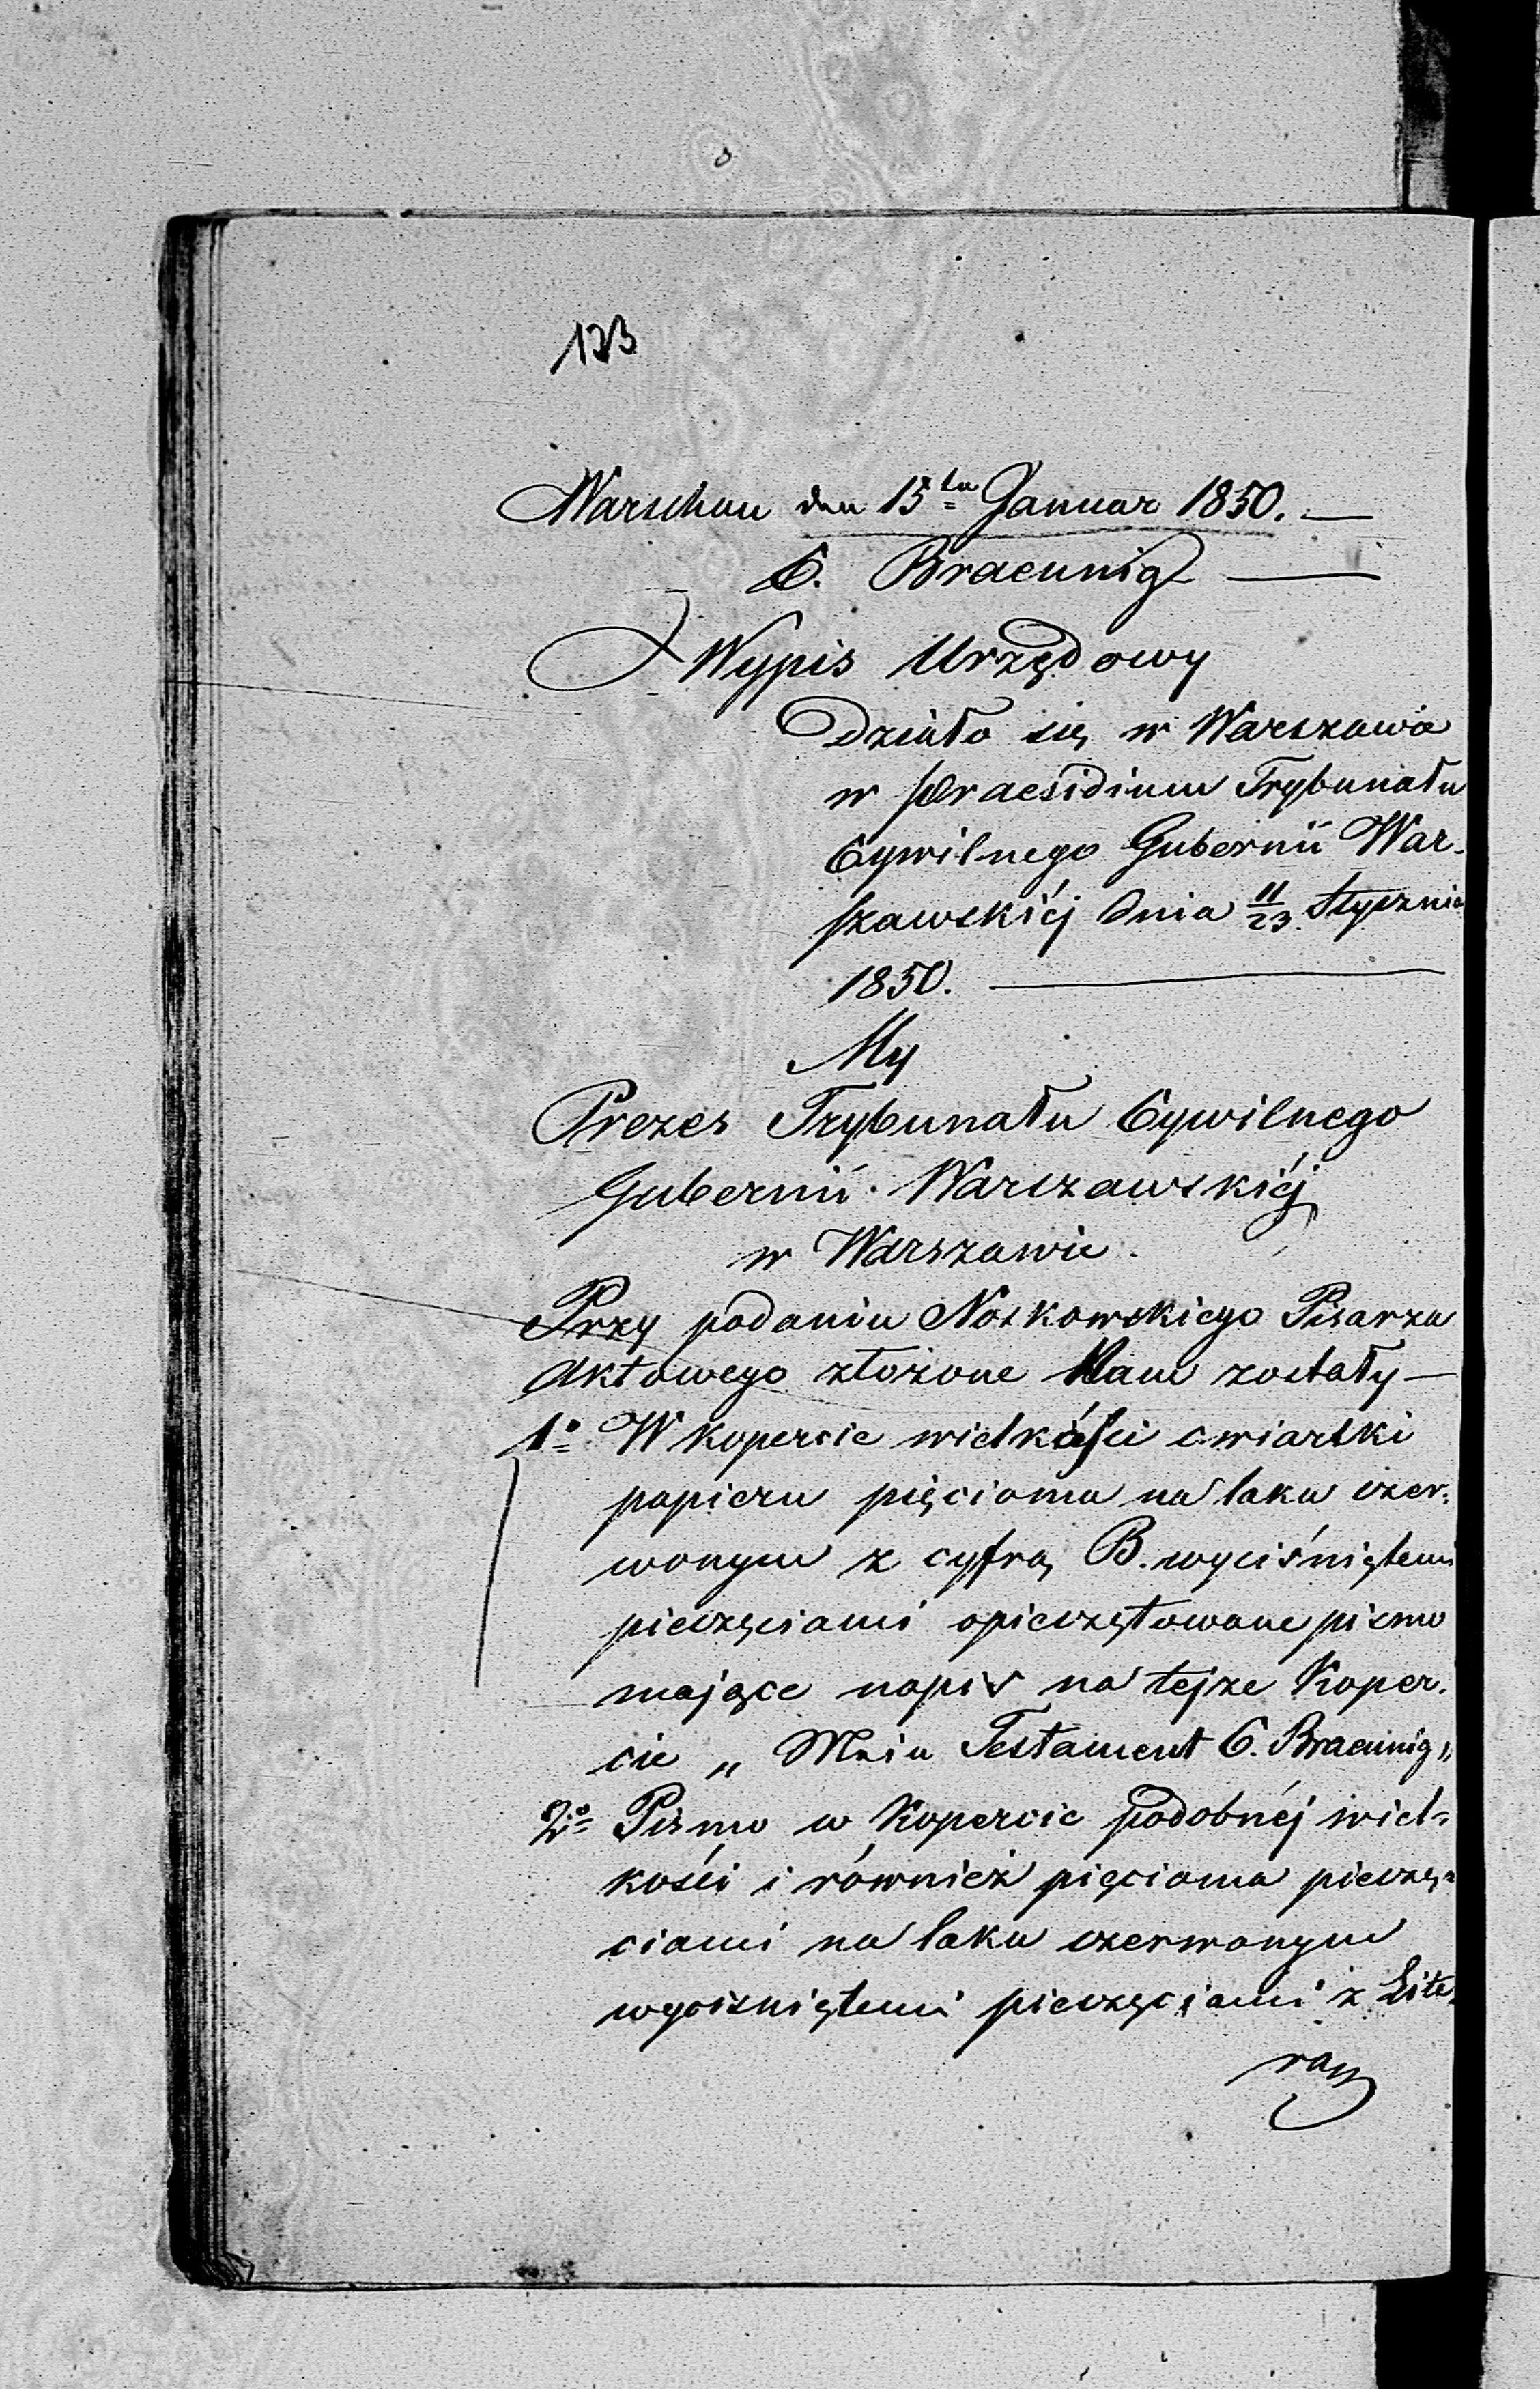 133
Warschau den 15ten Januar 1850. —
C. Braeunig —
Wypis Urzędowy
Działo się w Warszawie
w Praesidium Trybunału
Cywilnego Gubernii War-
szawskiéj dnia 11/23. Stycznia
1850. —
My
Prezes Trybunału Cywilnego
Gubernii Warszawskiéj
w Warszawie.
Przy podaniu Noskowskiego Pisarza
Aktowego złożone Nam zostały —
1o W kopercie wielkości cwiartki
papieru pięcioma na laku czer-
wonym z cyfrą B. wyciśniętemi
pieczęciami opieczętowane pismo
mające napis na tejze Koper-
cie „Mein Testament C. Braeunig„
2o Pismo w Kopercie podobnéj wiel-
kości i również pięcioma pieczę-
ciami na laku czerwonym
wycisniętemi pieczęciami z Lite-
rą